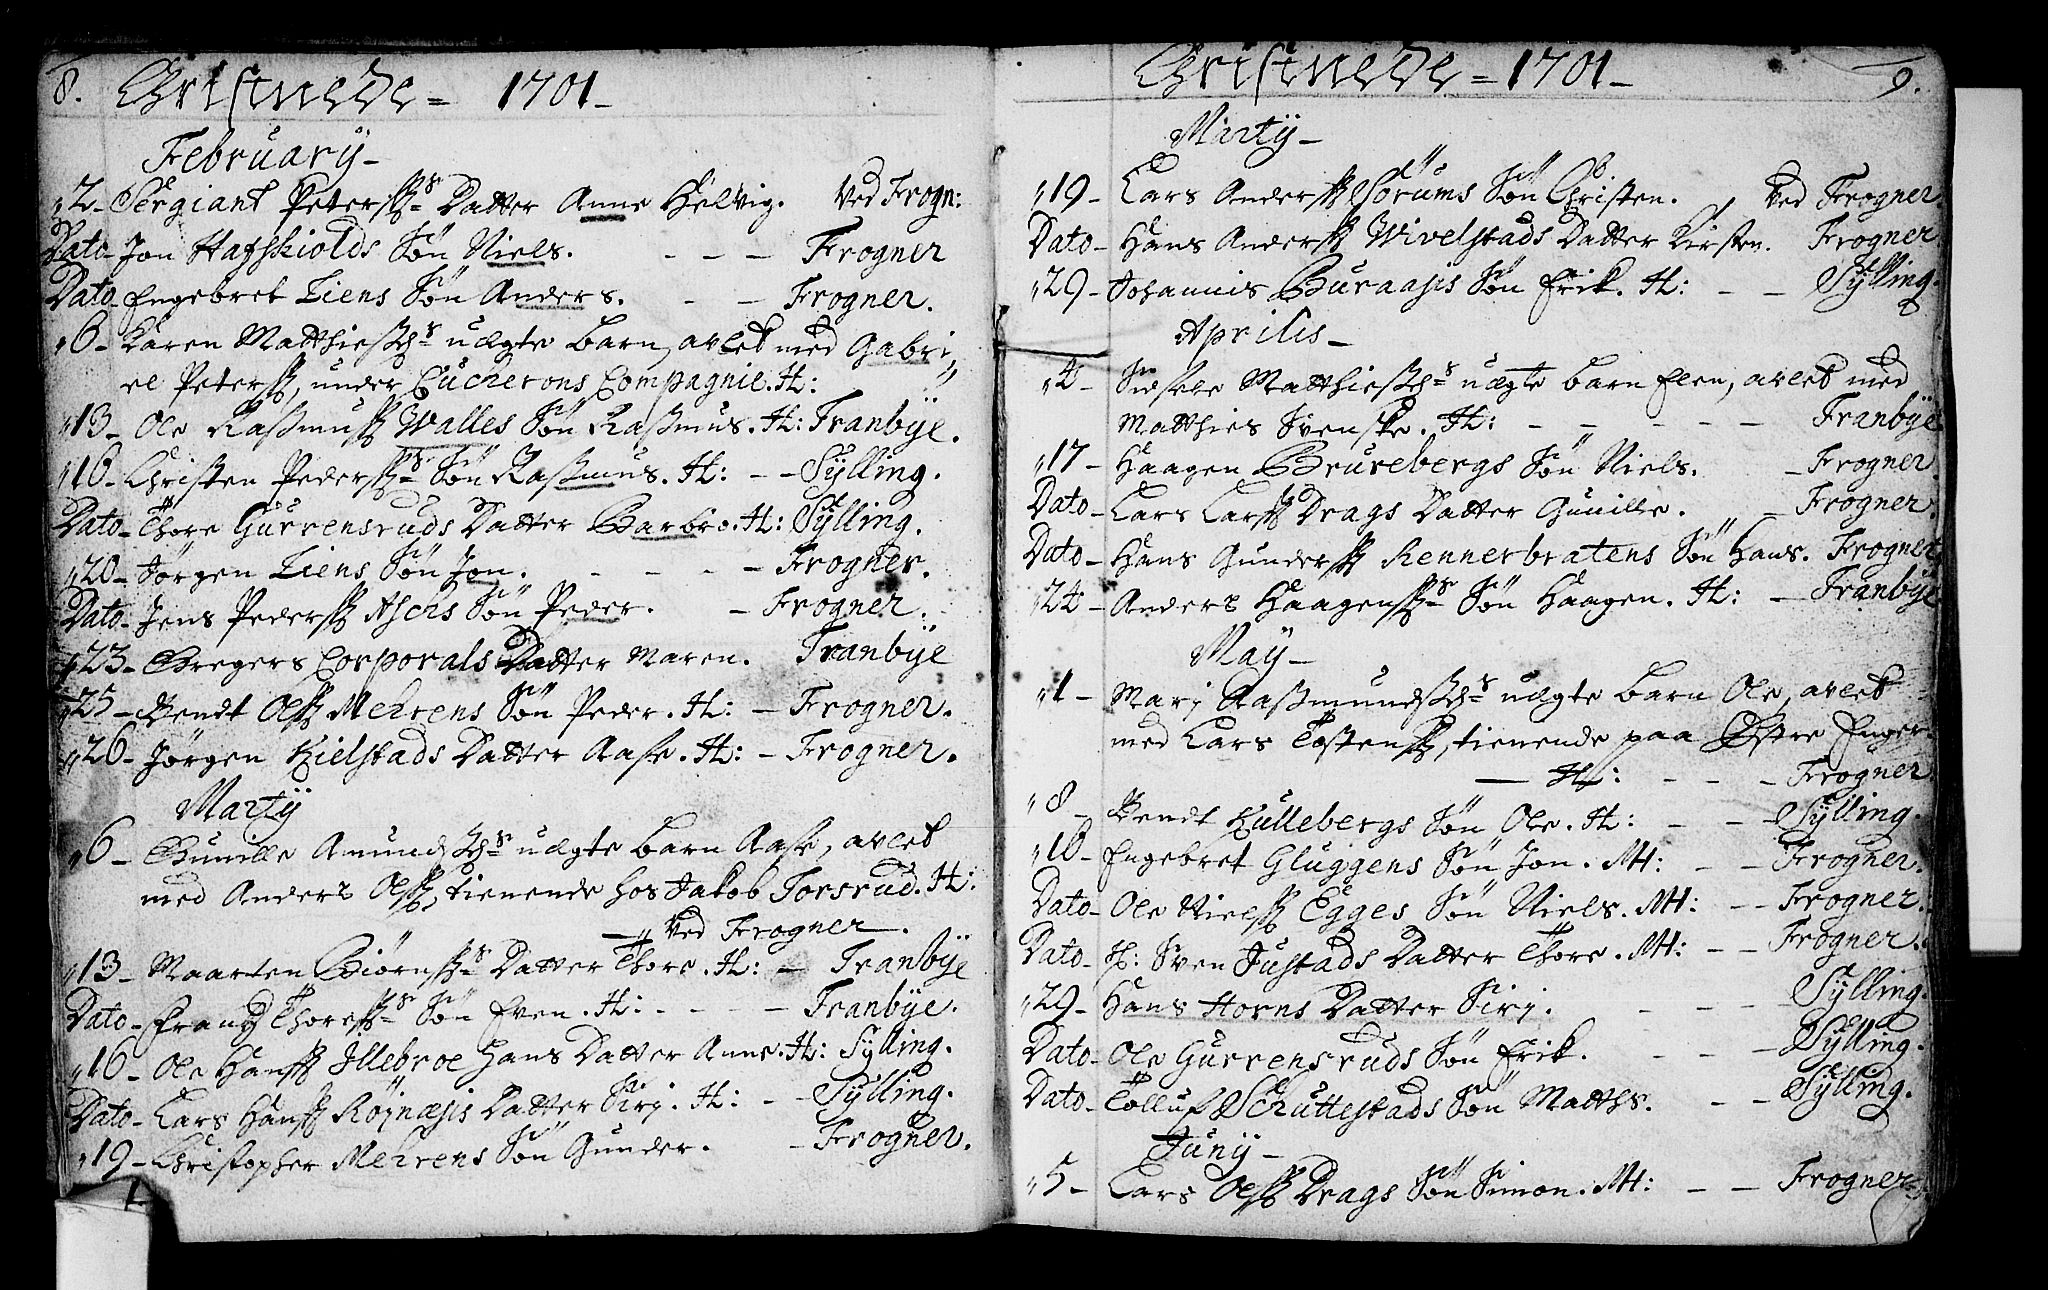 8. Christnede = 1701 -
February -
"2 - Sergiant Peterss:s Datter Anne Helvig. Ved Frogn:
Dato - Jon Hafskiolds Søn Niels. - - - Frogner
Dato - Engebret Liens Søn Anders. - - Frogner.
"6 - Karen Matthiess:s uægte barn, avlet med Gabri,
el Peterss, under Cucherons Compagnie. H:
"13 - Ole Rasmuss Walles Søn Rasmus. H: Tranbÿe.
"16 - Christen Pederss:s Søn Rasmus. H: - - Sÿlling.
Dato - Thore Gurrensruds Datter Barbro. H: Sÿlling.
"20 - Jørgen Liens Søn Jon. - - - - Frogner.
Dato - Jens Pederss Ashes Søn Peder. - Frogner.
"23 - Gregers Corporals Datter Maren. Tranbÿe
"25 - Bendt Olss Mehrens Søn Peder. H: - Frogner.
"26 - Jørgen Kielstads Datter Aase. H: - Frogner.
Martÿ
"6 - Gunille Amundss:s uægte barn Aase, avlet
med Anders Olss, tienende hos Jakob Torsrud. H:
- " Ved Frogner.
"13 - Maarten Biørnss:s Datter Thore. H: - Tranbÿe
Dato - Frandz Thoress:s Søn Even. H: - - - - Tranbÿe.
"16 - Ole Hanss Illebroe hans Datter Anne. H: Sÿlling.
Dato - Lars Hanss Røjnæsis Datter Sirj. H: - - Sÿlling.
"19 - Christopher Mehrens Søn Gunder. - Frogner.
Christnede = 1701 - 9.
Martÿ -
"19 - Lars Anderss Sørums Søn Christen. Ved Frogner.
Dato - Hans Anderss Wivelstads Datter Kirsten. Frogner
"29 - Johannis Buraasis Søn Erik. H: - - Sÿlling.
Aprilis -
"4 - Sidsele Matthiess:s uægte barn Elen, avlet med
Matthies Svenske. H: - - - - - Tranbÿe
"17 - Haagen Brurebergs Søn Niels. - Frogner
Dato - Lars Larss Drags Datter Gunille. - Frogner.
Dato - Hans Gunderss Rennerbratens Søn Hans. Frogner
"24 - Anders Haagenss:s Søn Haagen. H: - Tranbÿe
Maÿ -
"1 - Marj Rasmundss:s uægte barn Ole, avlet
med Lars Tostenss, tienende paa Østre Enger.
- H: - - - Frogner
"8 - Bendt Kullebergs Søn Ole. H: - - Sÿlling.
"10 - Engebret Gluggens Søn Jon. MH: - - Frogner.
Dato - Ole Nielss Egges Søn Niels. MH: - - Frogner.
Dato - Sven Justads Datter Thore. MH: - - Frogner.
"29 - Hans Horns Datter Sirj. - - - Sÿlling.
Dato - Ole Gurrensruds Søn Erik. - - - Sÿlling.
Dato - Tolluf Schuttestads Søn Matths. - - Sÿlling.
Junÿ -
"5 - Lars Olss Drags Søn Simon. MH: - - Frogner.